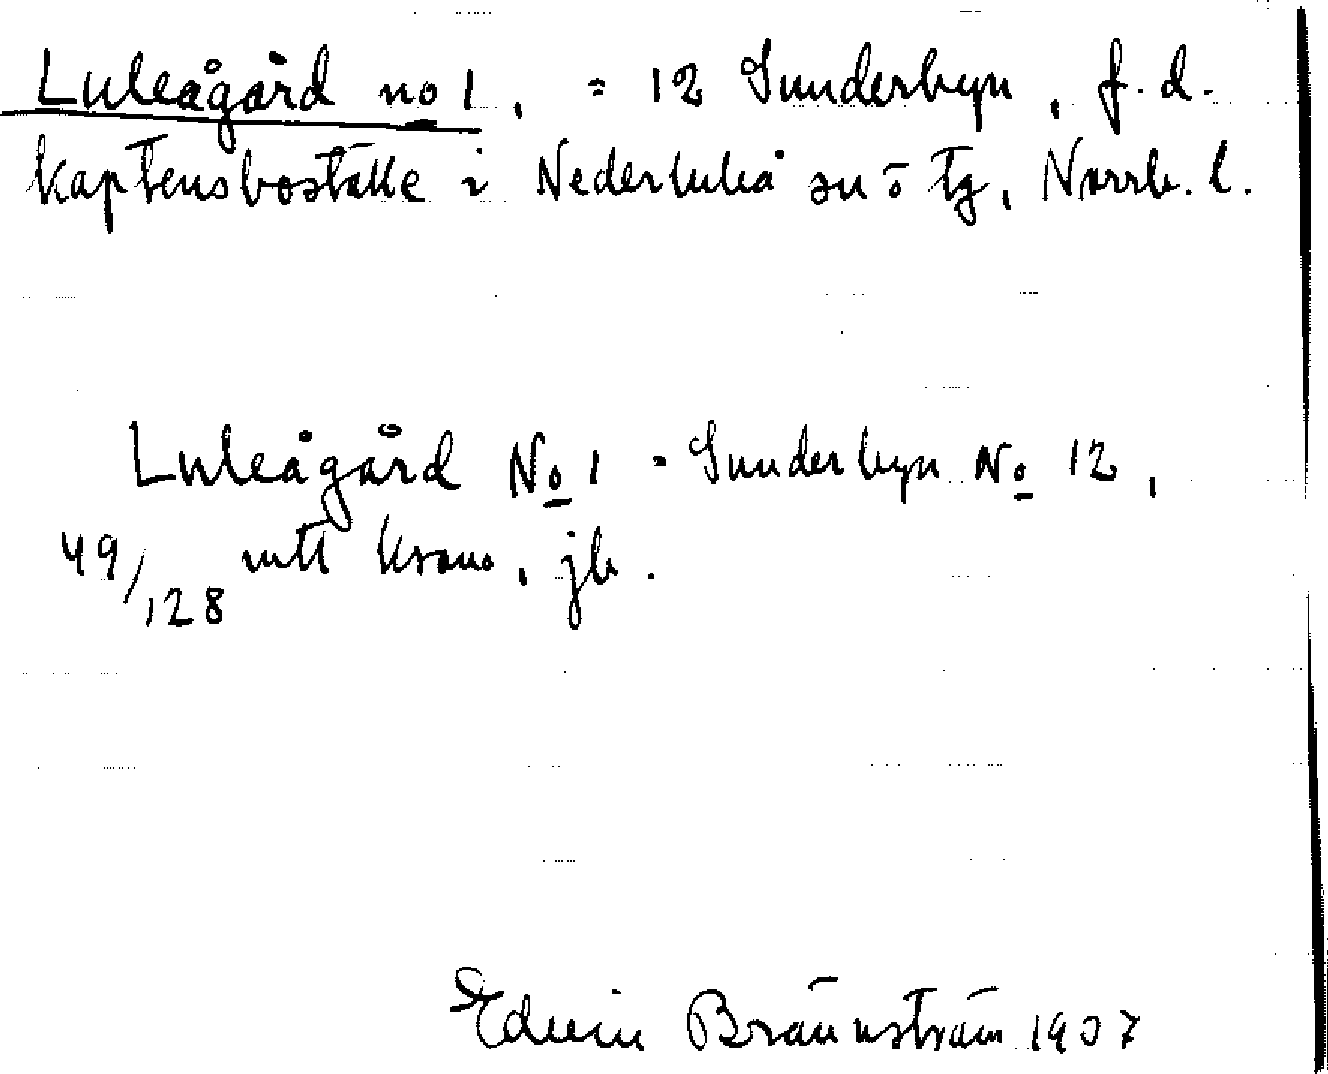 Luleågård no 1, = 12 Sunderbyn, f.d.
kaptensboställe i Nederluleå sn ō tg, Norrb. l.
Luleågård No 1 = Sunderbyn No 12,
49/128 mtl krono, jb.
Edvin Brännström 1907